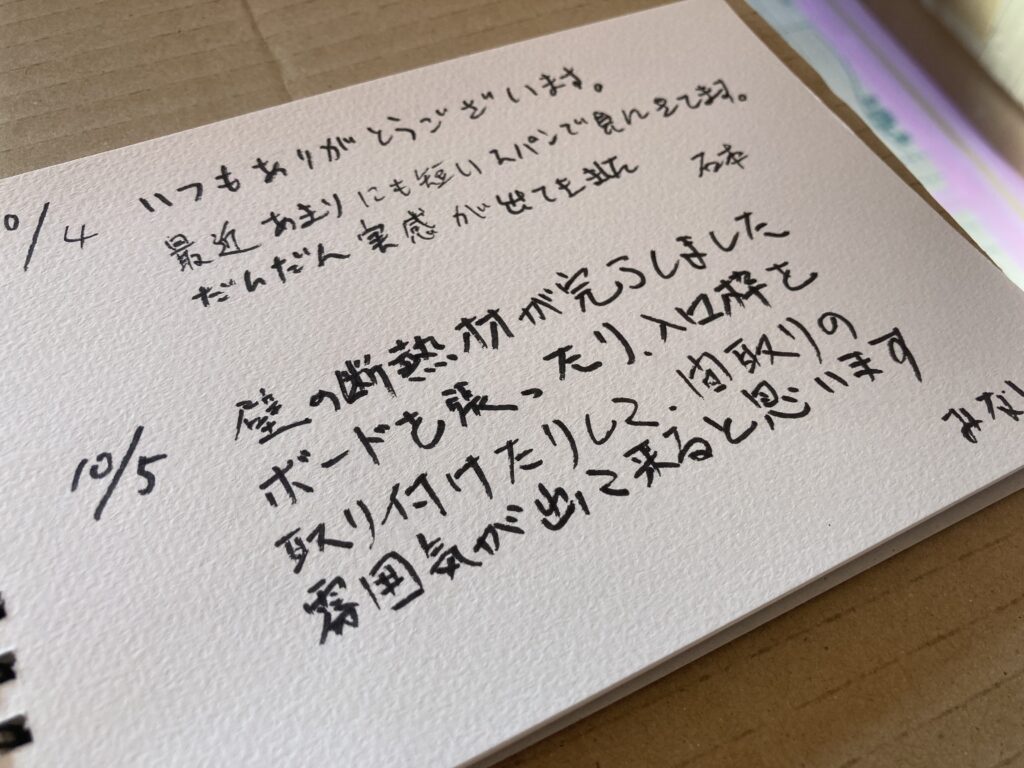 0/4 いつもありがとうございます。
最近あまりにも短いスパンで見にきてます。
だんだん実感が出てきました 石本
10/5 壁の断熱材が完らしました
ボードを張ったり、入口枠を
取り付けたりして、間取りの
雰囲気が出て来ると思います
みなし